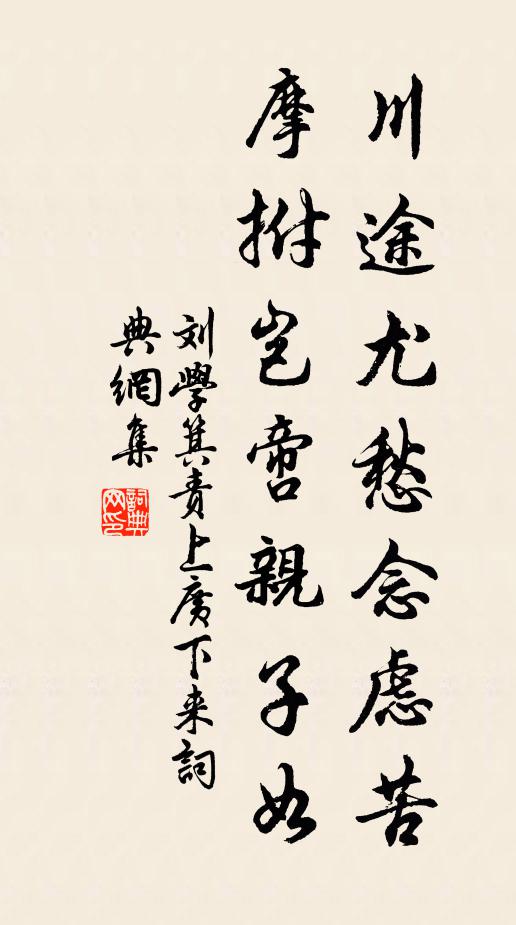 川途尤愁念慮苦
摩拊岂啻親子如
刘學箕責上廣下来詞
典網集
詞典网印